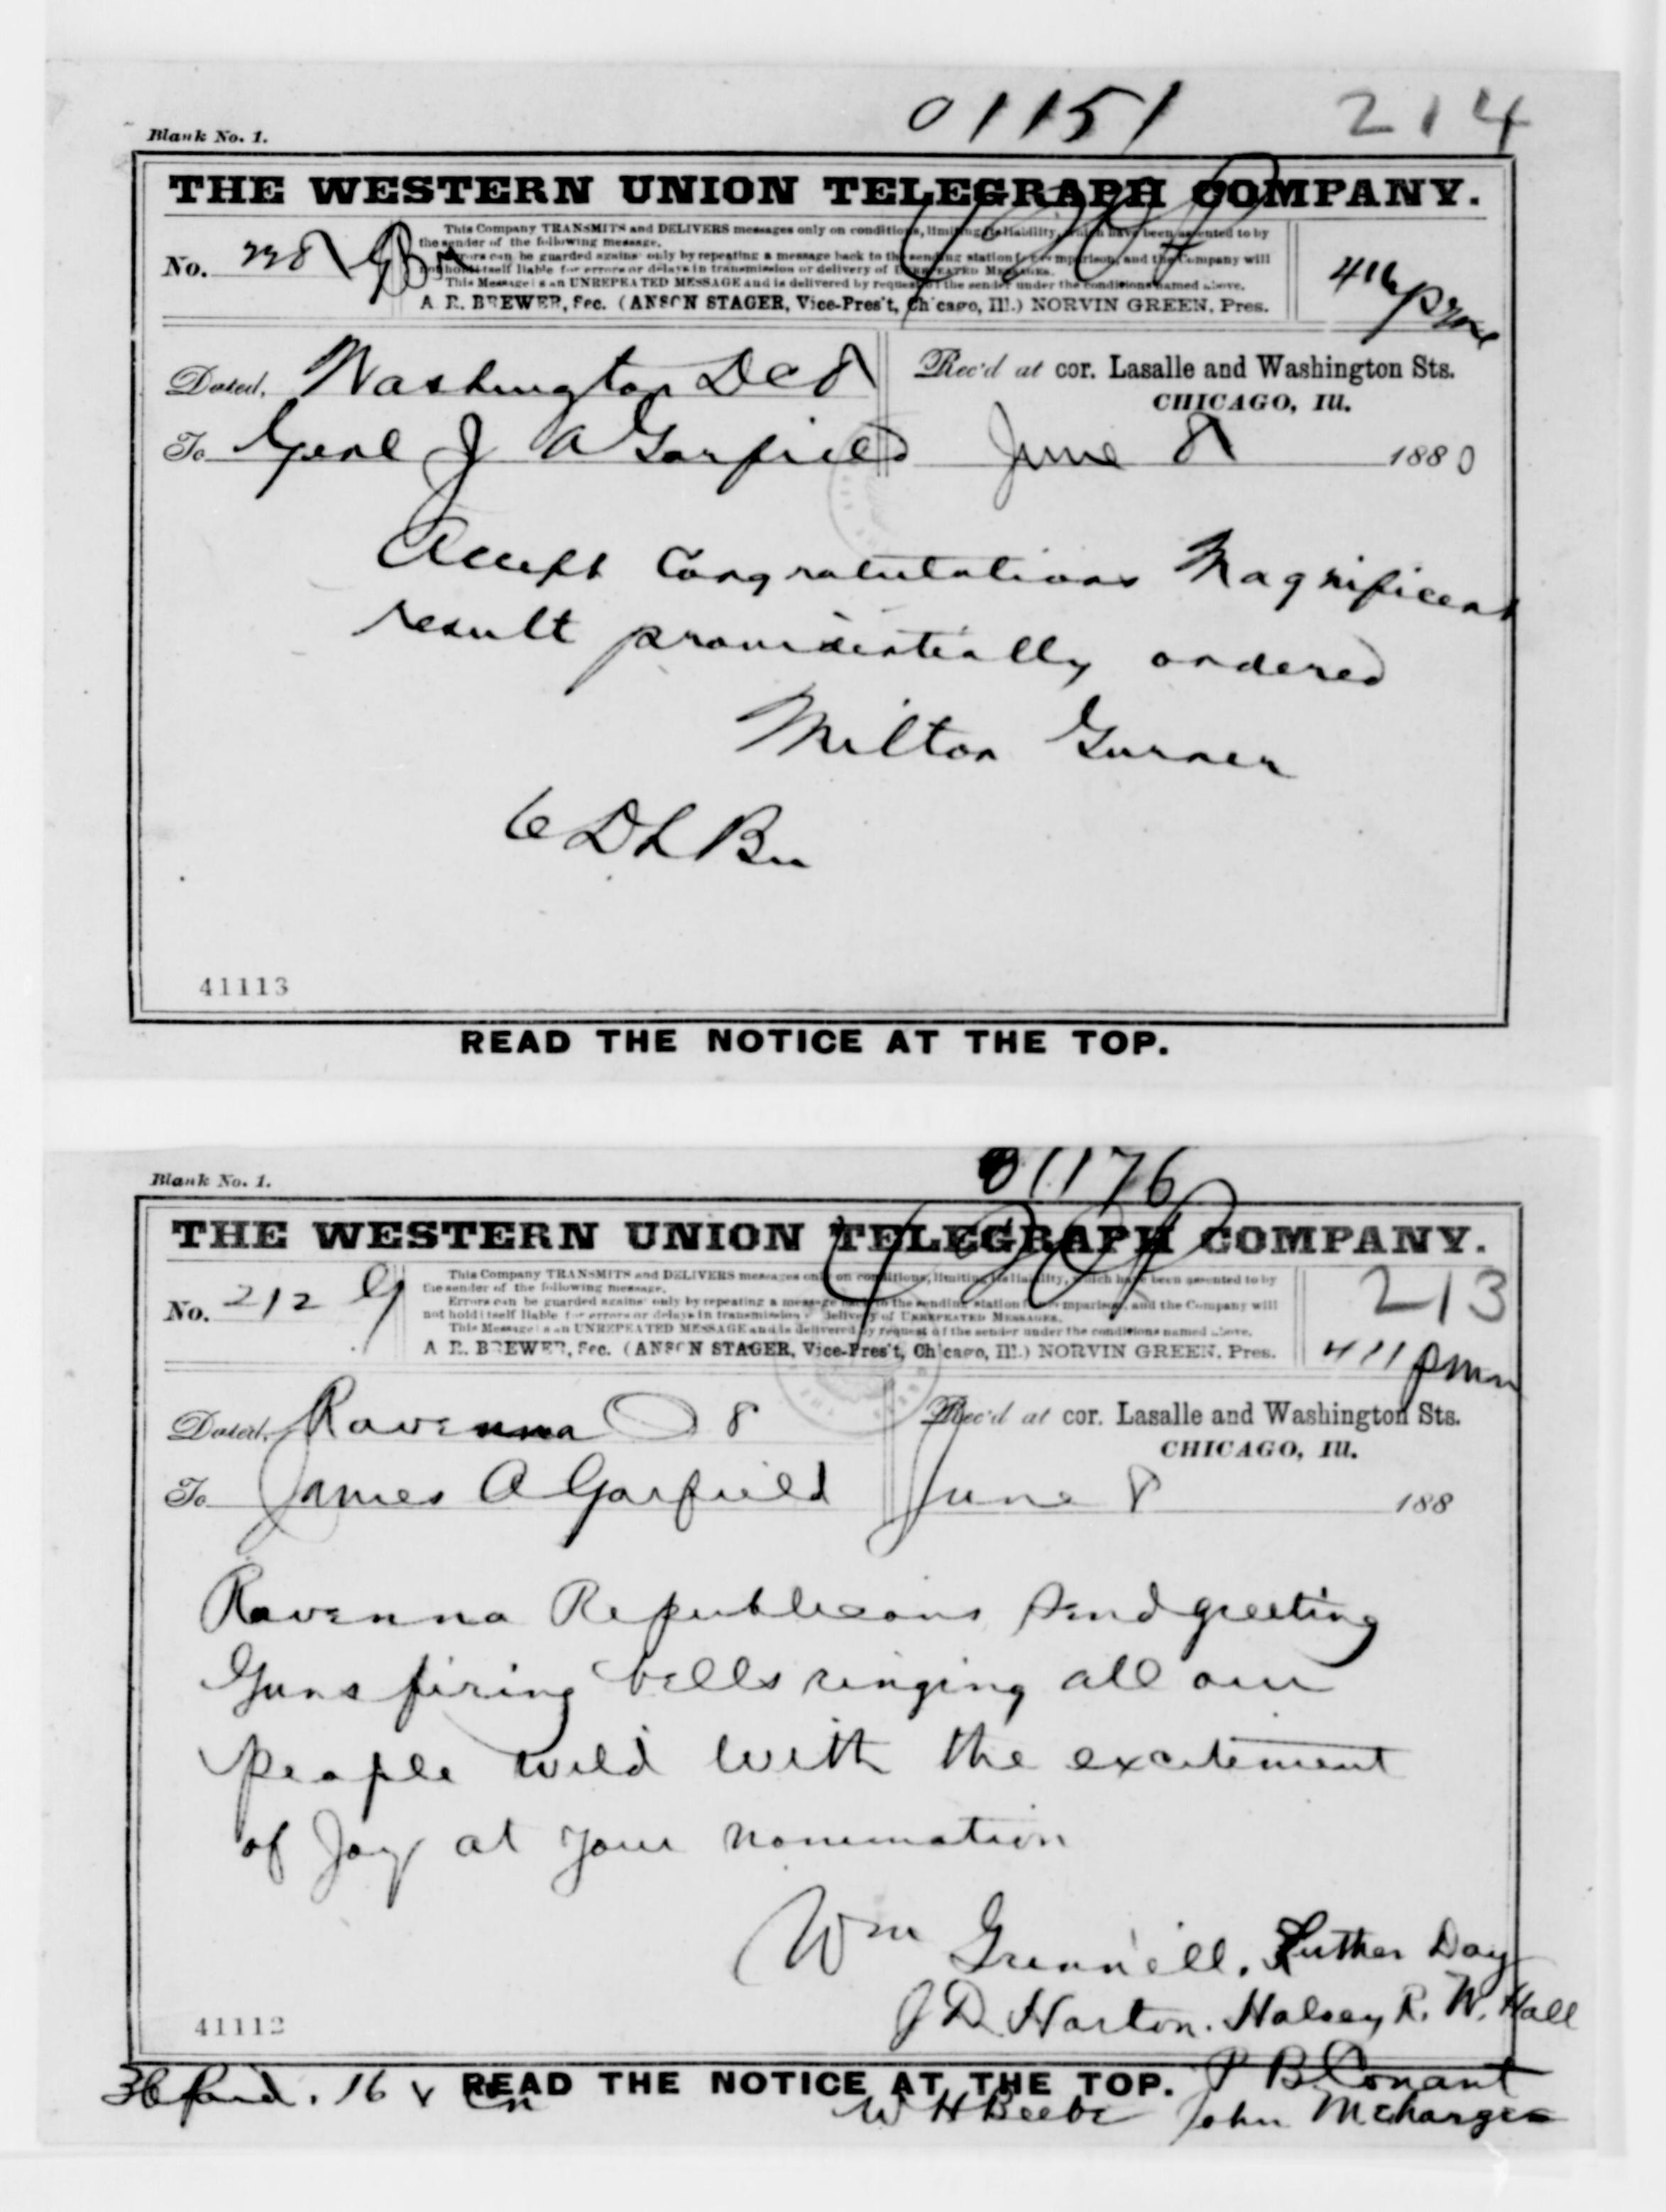 01151 214
Blank No. 1.
THE WESTERN UNION TELEGRAPH COMPANY.
This Company TRANSMITS and DELIVERS messages only on conditions, limiting its liability, which have been assented to by
the sender of the following message.
Errors can be guarded against only by repeating a message back to the sending station for comparison, and the Company will
not hold itself liable for errors or delays in transmission or delivery of UNREPEATED MESSAGES.
This Message is an UNREPEATED MESSAGE and is delivered by request of the sender under the conditions named above.
A. R. BREWER, Sec. (ANSON STAGER, Vice-Pres't, Chicago, Ill.) NORVIN GREEN, Pres.
No.
416 pm
Dated, Washington DC 8
Rec'd at cor. Lasalle and Washington Sts.
CHICAGO, Ill.
To Genl J A Garfield June 8 1880
Accept Congratulations Magnificent
result providentially ordered
Milton
41113
READ THE NOTICE AT THE TOP.
01176
Blank No. 1.
THE WESTERN UNION TELEGRAPH COMPANY.
This Company TRANSMITS and DELIVERS messages only on conditions, limiting its liability, which have been assented to by
the sender of the following message.
Errors can be guarded against only by repeating a message back to the sending station for comparison, and the Company will
not hold itself liable for errors or delays in transmission or delivery of UNREPEATED MESSAGES.
This Message is an UNREPEATED MESSAGE and is delivered by request of the sender under the conditions named above.
A. R. BREWER, Sec. (ANSON STAGER, Vice-Pres't, Chicago, Ill.) NORVIN GREEN, Pres.
No. 212
213
411 pm
Dated, Ravenna O 8
Rec'd at cor. Lasalle and Washington Sts.
CHICAGO, Ill.
To James A Garfield June 8 188
Ravenna Republicans send greeting
Guns firing bells ringing all our
people wild with the excitement
of Joy at your nomination
Wm Grinnell. Luther Day
J D Horton. Halsey R. W. Hall
41112
P B Conant
READ THE NOTICE AT THE TOP.
W H Beebe John McHarge